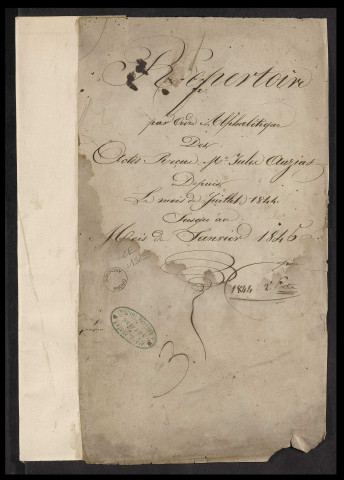 Repertoire
par Ordre Alphabétique
Des
Actes Reçus Me Jules Auzias
Depuis
Le mois de Juillet 1844
Jusqu'au
Mois de Janvier 1846
1844